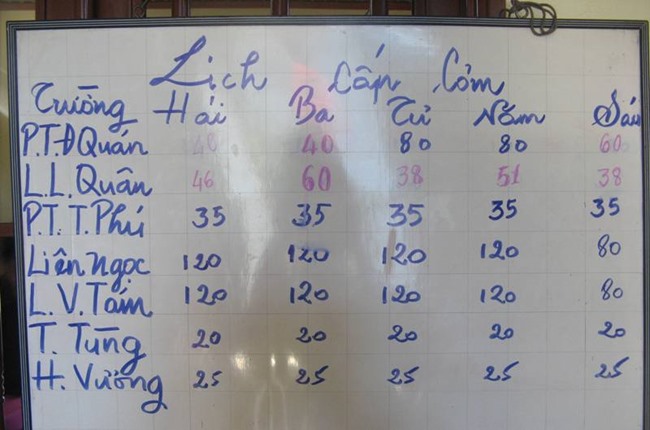 Lịch Cấp Cơm
Trường Hai Ba Tư Năm Sáu
P.T.Đ Quán 40 40 80 80 60
L.L.Quân 46 60 38 51 38
P.T.T.Phú 35 35 35 35 35
Liên Ngọc 120 120 120 120 80
L.V.Tám 120 120 120 120 80
T. Tùng 20 20 20 20 20
H. Vương 25 25 25 25 25